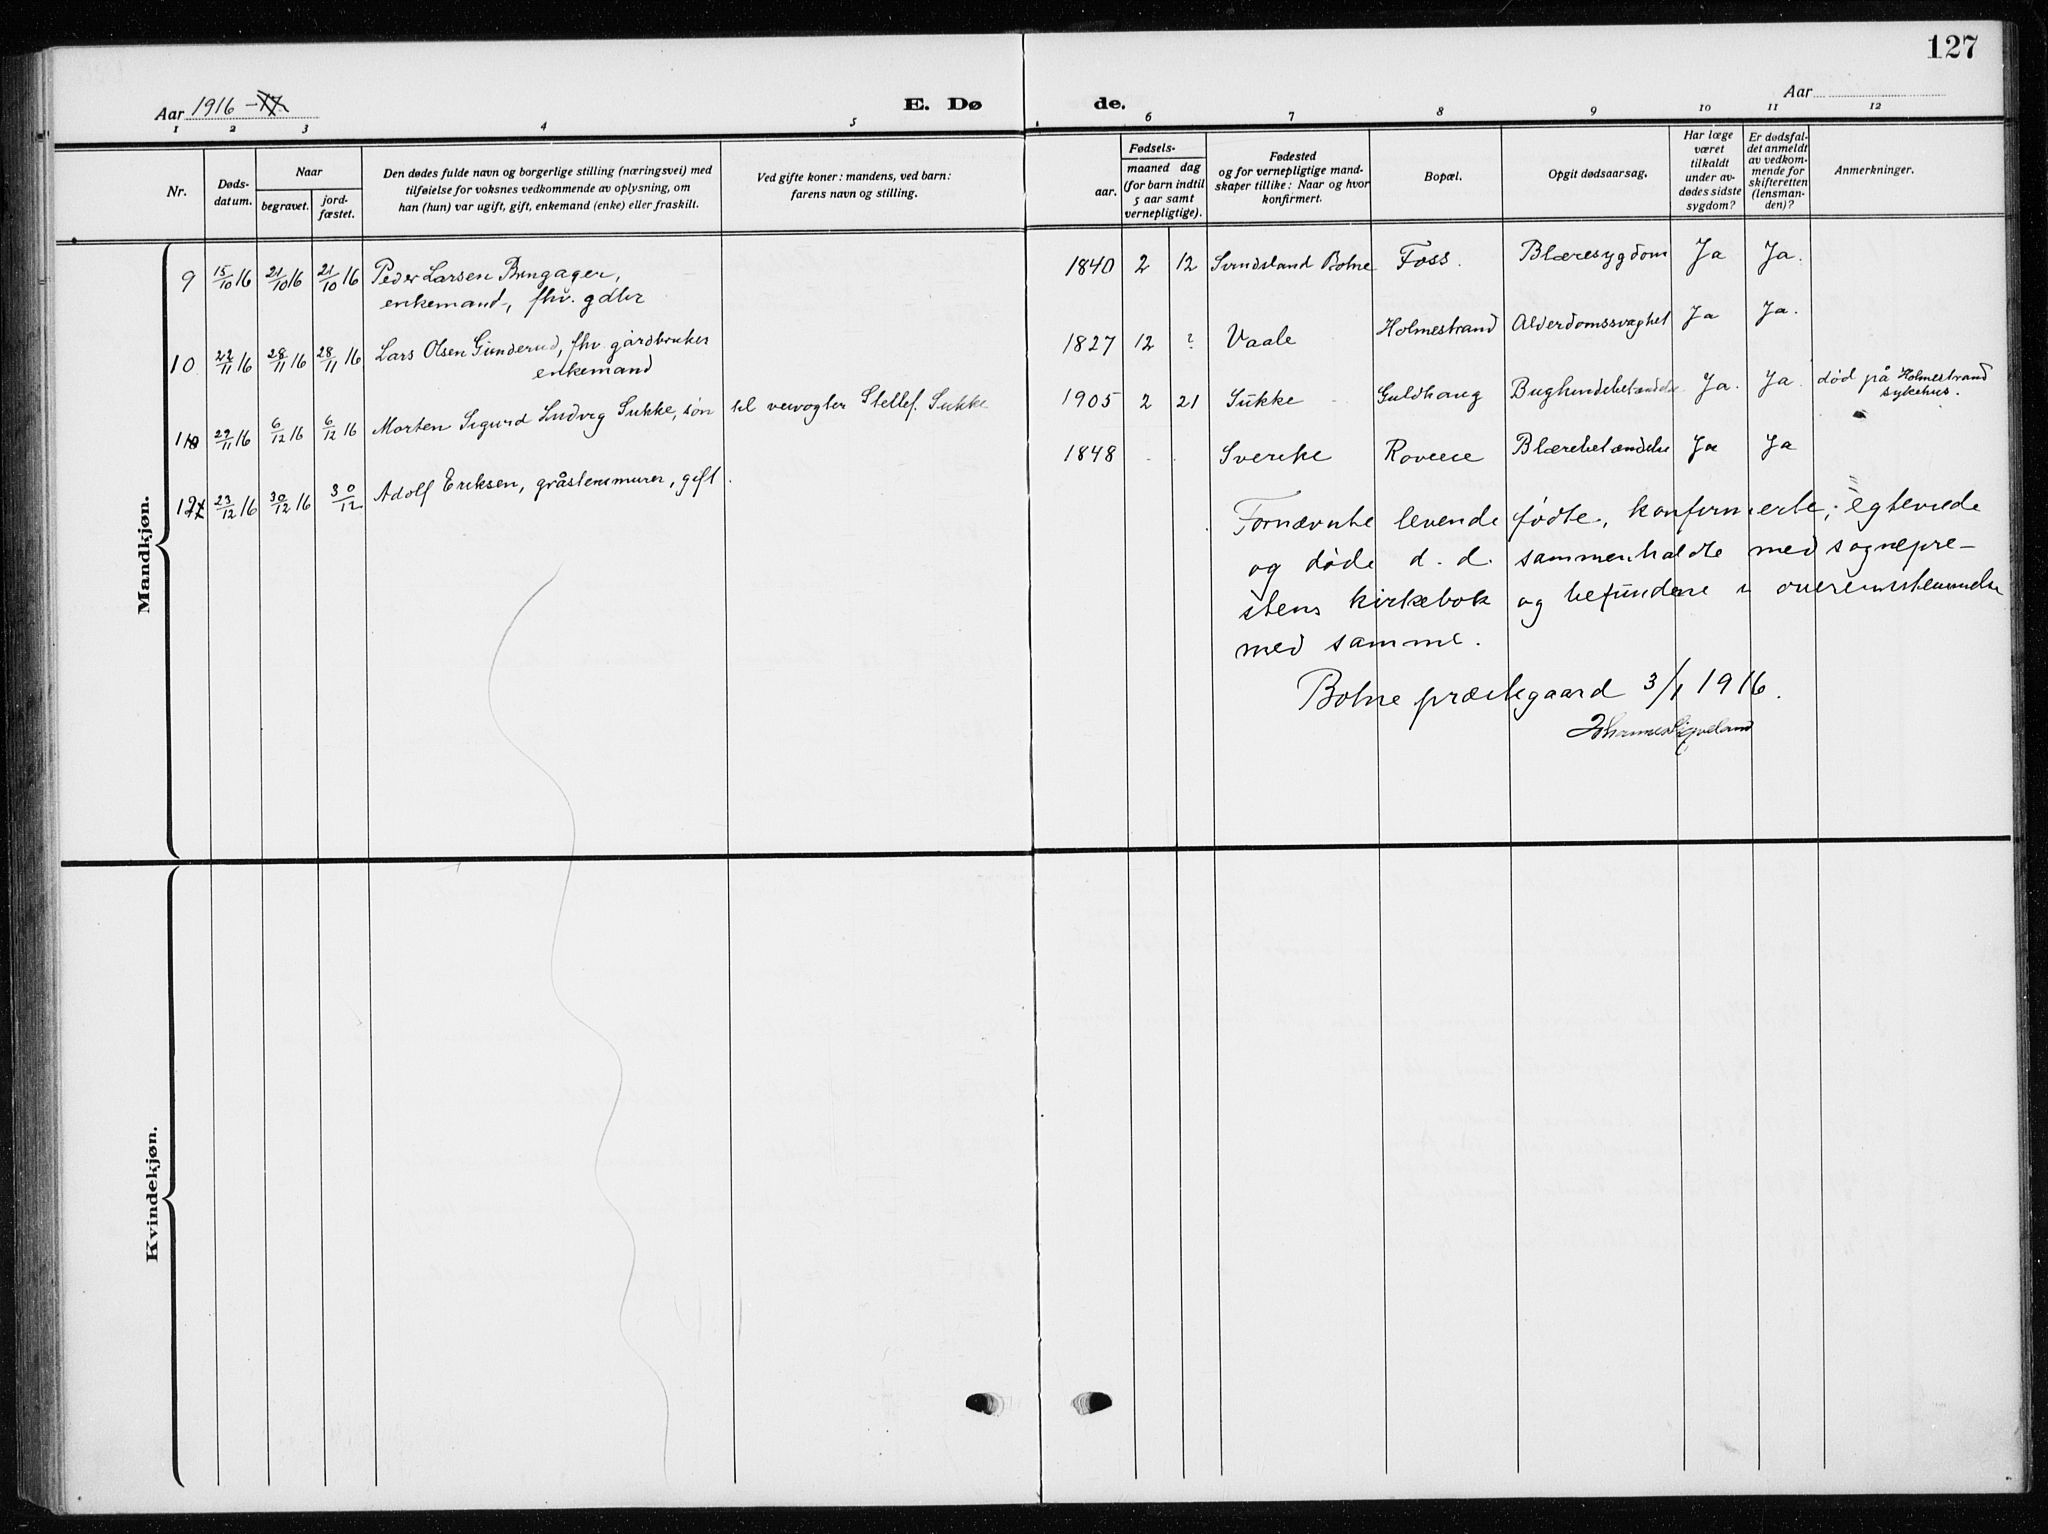 127
Aar 1916 -17.
E. Dø
de.
Aar
1 2 3 4 5 6 7 8 9 10 11 12
Nr.
Døds-
datum.
Naar
begravet.
jord-
fæstet.
Den dødes fulde navn og borgerlige stilling (næringsvei) med
tilføielse for voksnes vedkommende av oplysning, om
han (hun) var ugift, gift, enkemand (enke) eller fraskilt.
Ved gifte koner: mandens, ved barn:
farens navn og stilling.
Fødsels-
aar.
maaned dag
(for barn indtil
5 aar samt
vernepligtige).
Fødested
og for vernepligtige mand-
skaper tillike: Naar og hvor
konfirmert.
Bopæl.
Opgit dødsaarsag.
Har læge
været
tilkaldt
under av-
dødes sidste
sygdom?
Er dødsfal-
det anmeldt
av vedkom-
mende for
skifteretten
(lensman-
den)?
Anmerkninger.
Mandkjøn.
9 15/10 16 21/10 16 21/10 16 Peder Larsen Bengager, 1840 2 12 Svindsland Botne Foss. Blæresygdom Ja Ja.
enkemand, fhv. gdbr
10 22/11 16 28/11 16 28/11 16 Lars Olsen Gunderud, fhv. gårdbruker 1827 12 ? Vaale Holmestrand Alderdomssvaghet Ja Ja.
enkemand
11 29/11 16 6/12 16 6/12 16 Morten Sigurd Ludvig Sukke, søn til veivogter Stellef. Sukke 1905 2 21 Sukke Guldhaug Bughindebetændelse Ja. Ja. død på Holmestrand
sykehus.
12 23/12 16 30/12 16 30/12 Adolf Eriksen, gråstensmurer, gift. 1848 . . Sverike Roveie Blærebetændelse Ja Ja
Fornævnte levende fødte, konfirmerte, egteviede
og døde d. d. sammenholdte med sognepre-
stens kirkebok og befundene i overensstemmelse
med samme.
Botne præstegaard 3/1 1916.
Johannes Sigveland
Kvindekjøn.